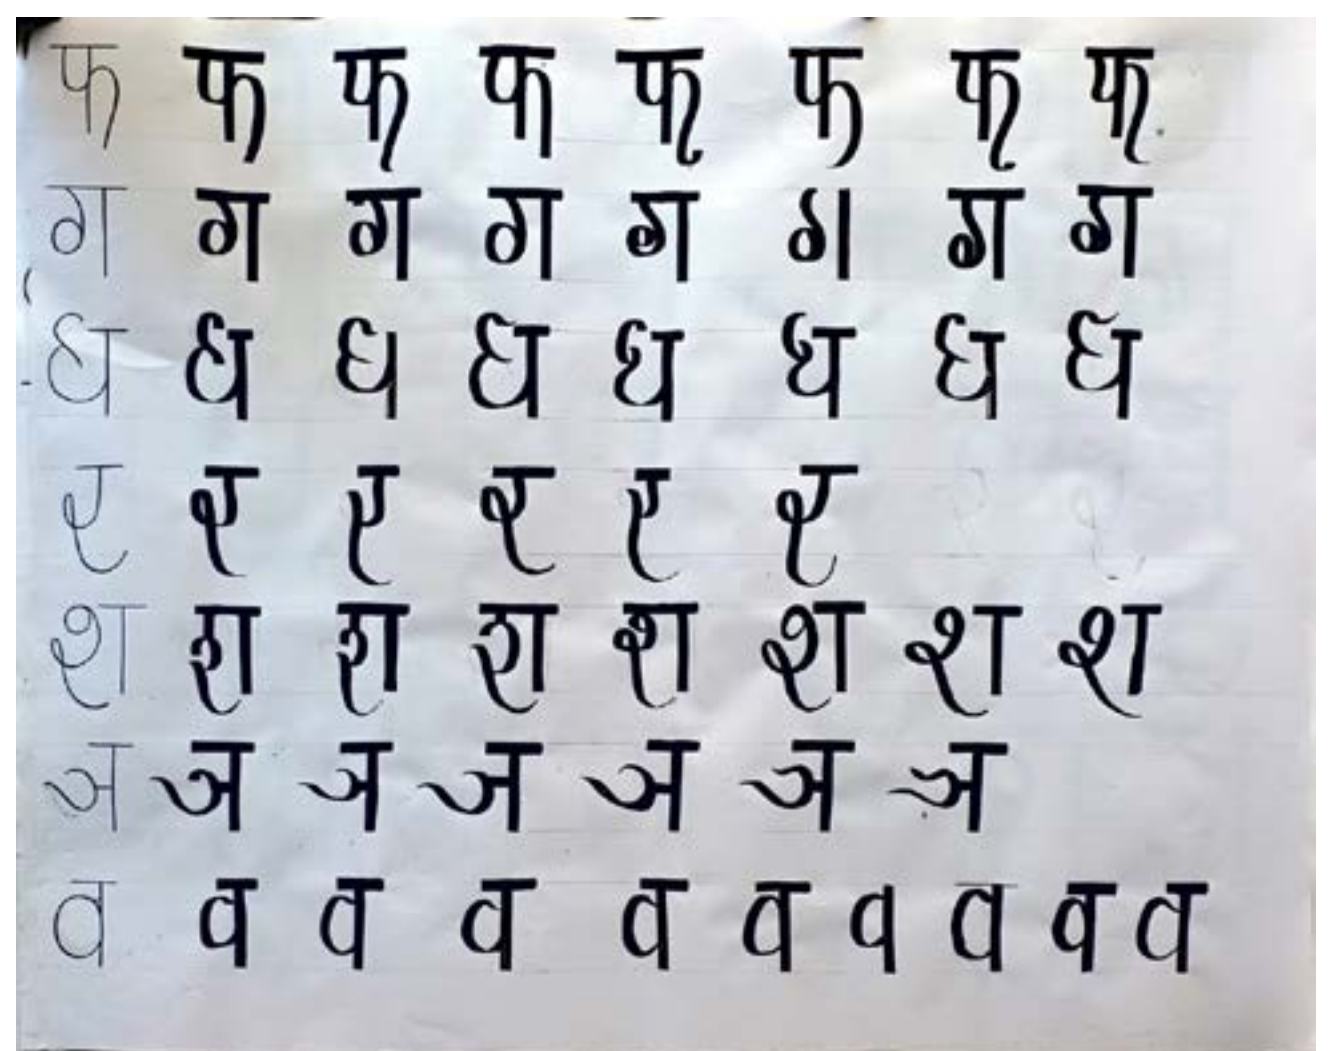 फ फ फ फ फ फ फ फ
ग ग ग ग ग ग ग ग
ध ध ध ध ध ध ध ध
र र र र र र
श श श श श श श श
ञ ञ ञ ञ ञ ञ ञ
व व व व व व व व व व